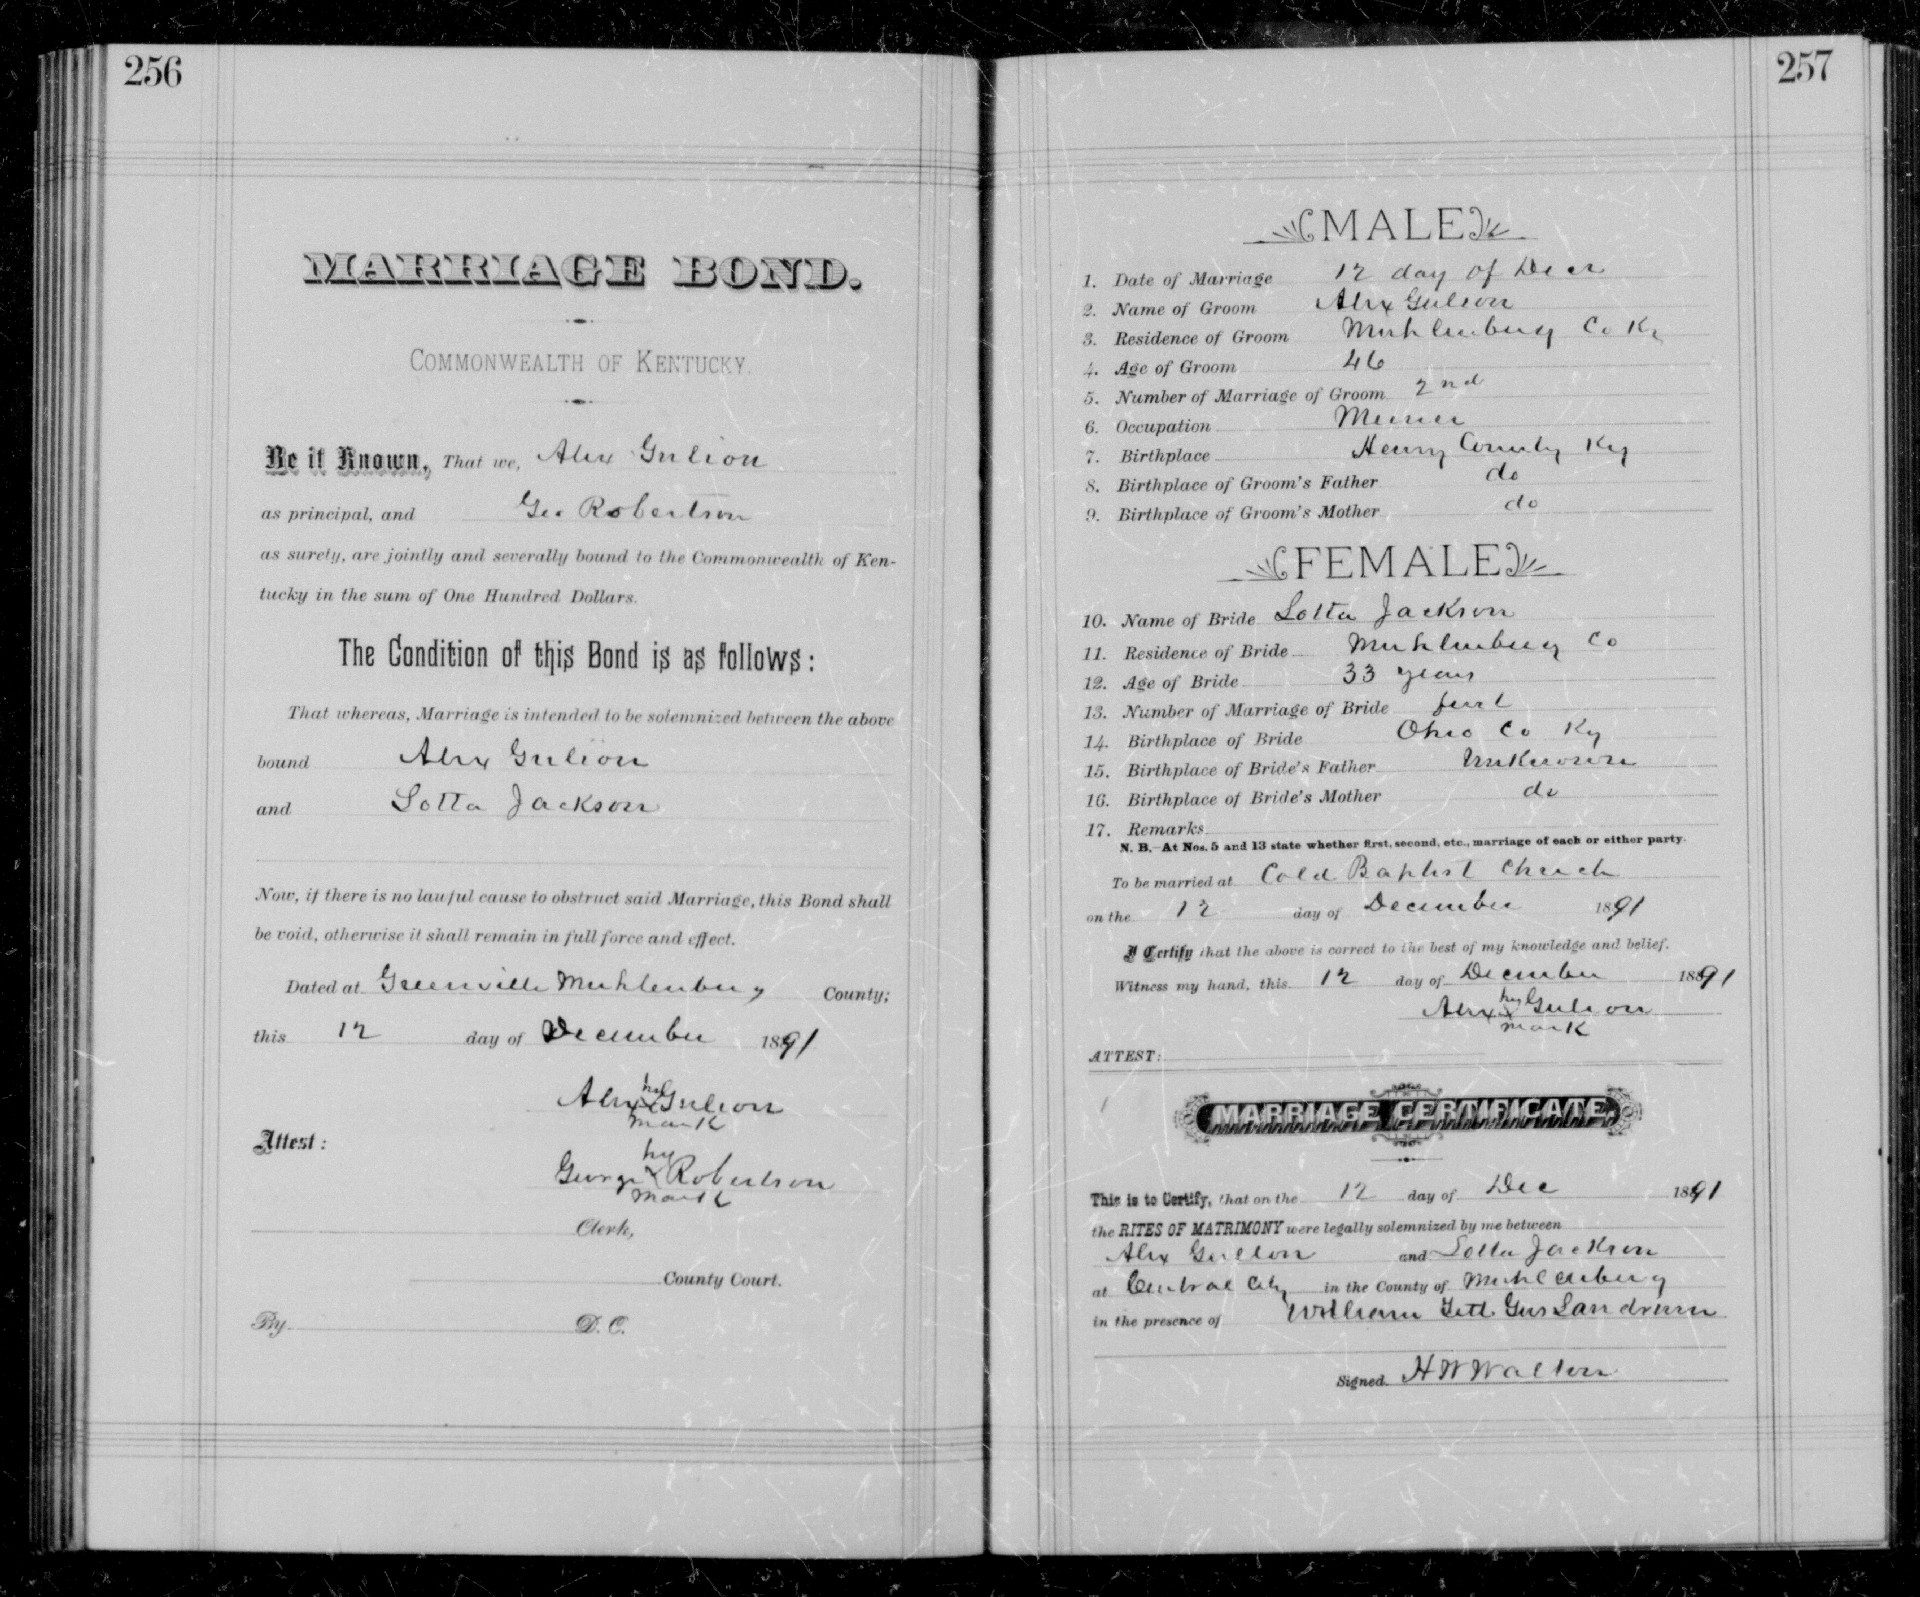 256
MARRIAGE BOND.
COMMONWEALTH OF KENTUCKY.
Be it Known, That we, Alex Gulion
as principal, and Geo Robertson
as surety, are jointly and severally bound to the Commonwealth of Ken-
tucky in the sum of One Hundred Dollars.
The Condition of this Bond is as follows:
That whereas, Marriage is intended to be solemnized between the above
bound Alex Gulion
and Lotta Jackson
Now, if there is no lawful cause to obstruct said Marriage, this Bond shall
be void, otherwise it shall remain in full force and effect.
Dated at Greenville Muhlenburg County;
this 12 day of December 1891
Alex his x Gulion
mark
Attest:
his
George x Robertson
mark
Clerk,
County Court.
By D. C.
257
MALE
1. Date of Marriage 12 day of Decr
2. Name of Groom Alex Gulion
3. Residence of Groom Muhlenburg Co Ky
4. Age of Groom 46
5. Number of Marriage of Groom 2nd
6. Occupation Miner
7. Birthplace Henry County Ky
8. Birthplace of Groom's Father do
9. Birthplace of Groom's Mother do
FEMALE
10. Name of Bride Lotta Jackson
11. Residence of Bride Muhlenburg Co
12. Age of Bride 33 years
13. Number of Marriage of Bride first
14. Birthplace of Bride Ohio Co Ky
15. Birthplace of Bride's Father Unknown
16. Birthplace of Bride's Mother do
17. Remarks
N. B.—At Nos. 5 and 13 state whether first, second, etc., marriage of each or either party.
To be married at Cold Baptist Church
on the 12 day of December 1891
I Certify that the above is correct to the best of my knowledge and belief.
Witness my hand, this 12 day of December 1891
Alex his x Gulion
mark
ATTEST:
MARRIAGE CERTIFICATE.
This is to Certify, that on the 12 day of Dec 1891
the RITES OF MATRIMONY were legally solemnized by me between
Alex Gulion and Lotta Jackson
at Central City in the County of Muhlenburg
in the presence of William Gus Landrum
Signed. H W Walton